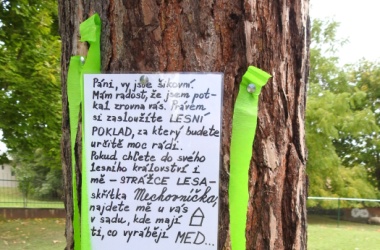 Páni, vy jste šikovní.
Mám radost, že jsem pot-
kal zrovna vás. Právem
si zasloužíte LESNÍ
POKLAD, za který budete
určitě moc rádi.
Pokud chcete do svého
lesního království i
mě - STRÁŽCE LESA -
skřítka Mechovníčka,
najdete mě u vás
v sadu, kde mají
ti, co vyrábějí MED...